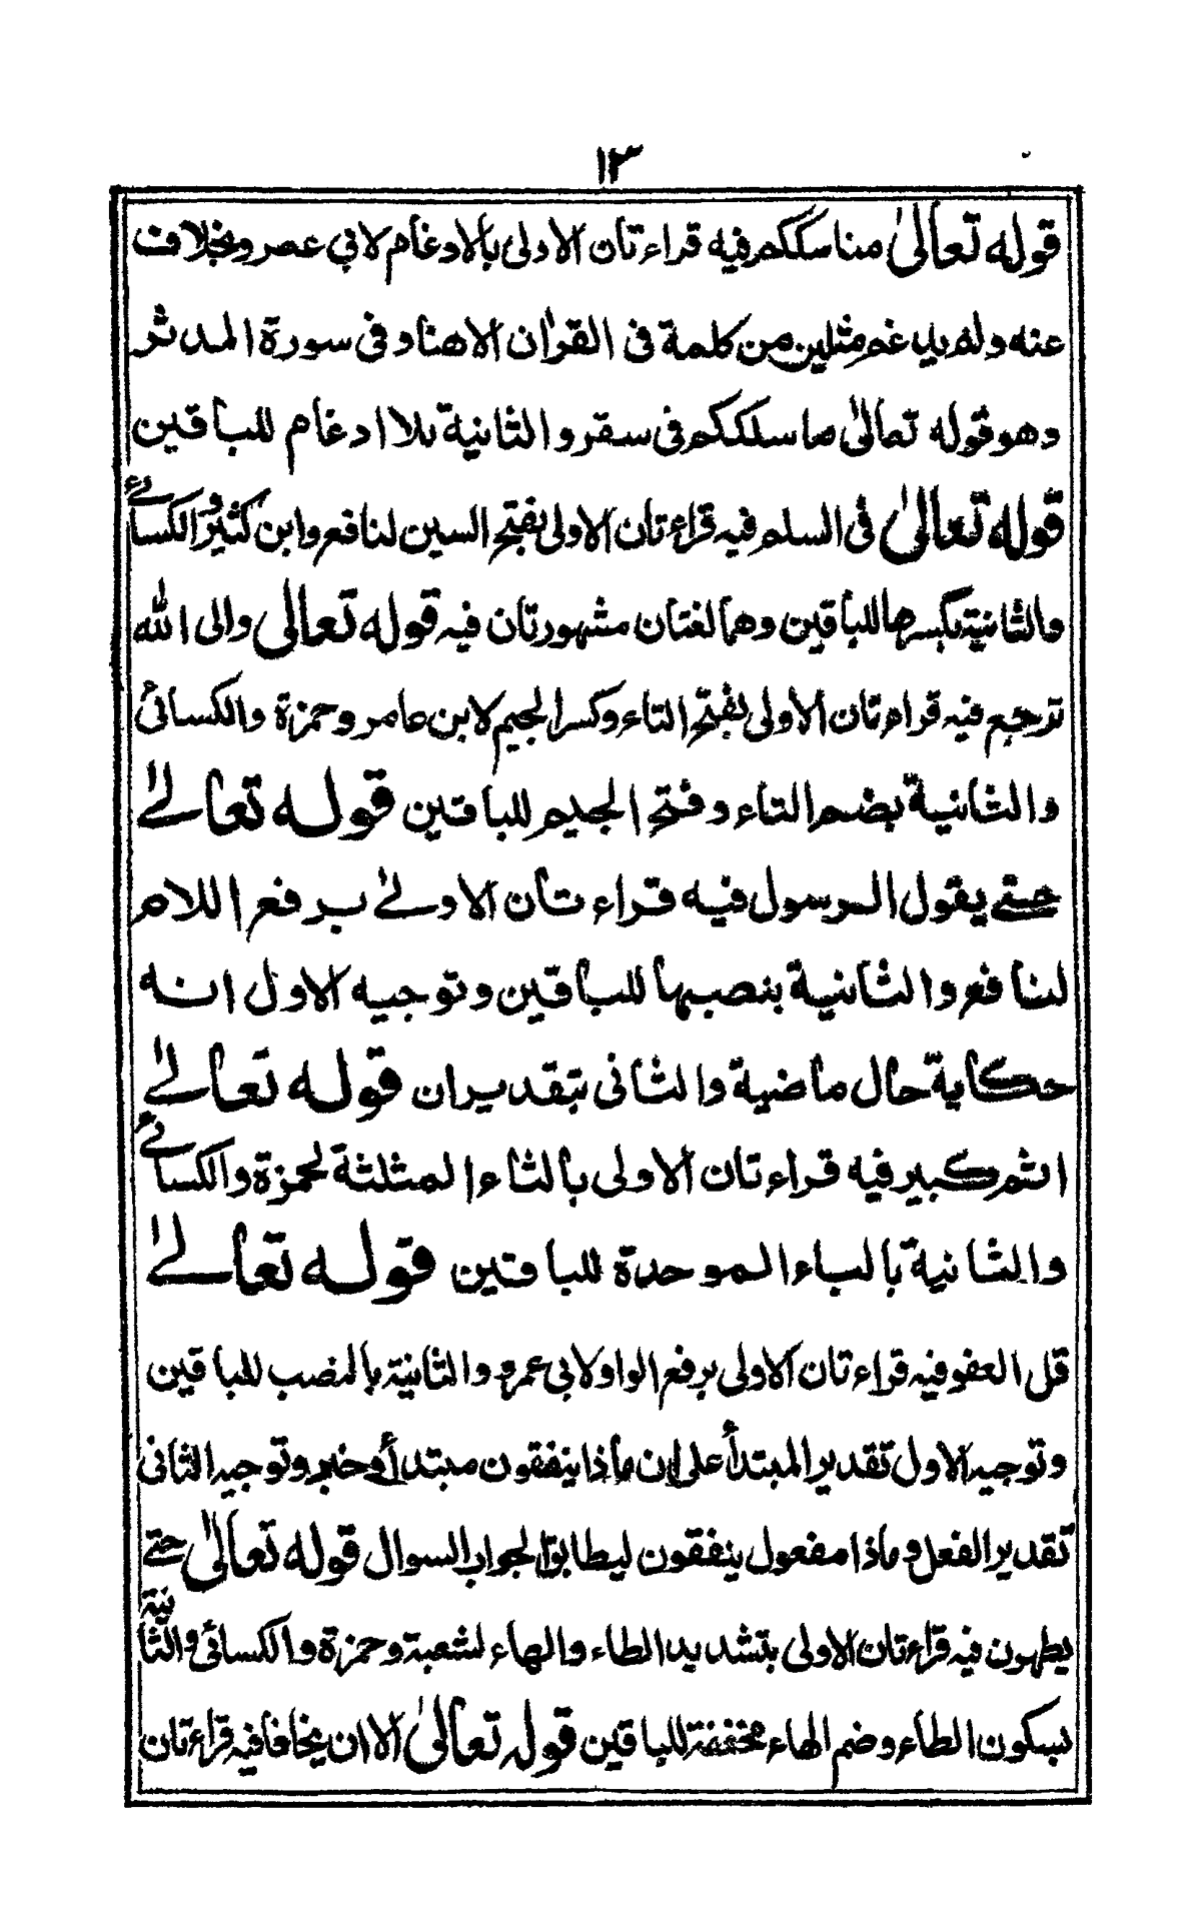 ١٣
قوله تعالىٰ مناسككم فيه قراءتان الاولى بالادغام لابي عمرو بخلاف
عنه ولم يدغم مثلين من كلمة فى القرأن الا هنا و فى سورة المدثر
وهو قوله تعالىٰ ما سلككم فى سقر والثانية بلا ادغام للباقين
قوله تعالىٰ فى السلم فيه قراءتان الاولى بفتح السين لنافع وابن كثير والكسائے
والثانية بكسرها للباقين وهما لغتان مشهورتان فيه قوله تعالى والى الله
ترجع فيه قراءتان الاولى بفتح التاء وكسر الجيم لابن عامر و حمزة والكسائى
والثانية بضم التاء و فتح الجيم للباقين قوله تعالےٰ
حتے يقول الرسول فيه قراءتان الاولےٰ برفع اللام
لنافع والثانية بنصبها للباقين و توجيه الاول انه
حكاية حال ماضية والثانى بتقدير ان قوله تعالےٰ
اثم كبير فيه قراءتان الاولى بالثاء المثلثة لحمزة والكسائے
والثانية بالباء الموحدة للباقين قوله تعالےٰ
قل العفو فيه قراءتان الاولى برفع الواو لابى عمرو والثانية بالنصب للباقين
و توجيه الاول تقدير المبتدأ على ان ماذا ينفقون مبتدأ و خبر و توجيه الثانى
تقدير الفعل و ماذا مفعول ينفقون ليطابق الجواب السوال قوله تعالىٰ حتے
يطهرن فيه قراءتان الاولى بتشديد الطاء والهاء لشعبة و حمزة والكسائى والثانية
بسكون الطاء و ضم الهاء مخففة للباقين قوله تعالىٰ الا ان يخافا فيه قراءتان